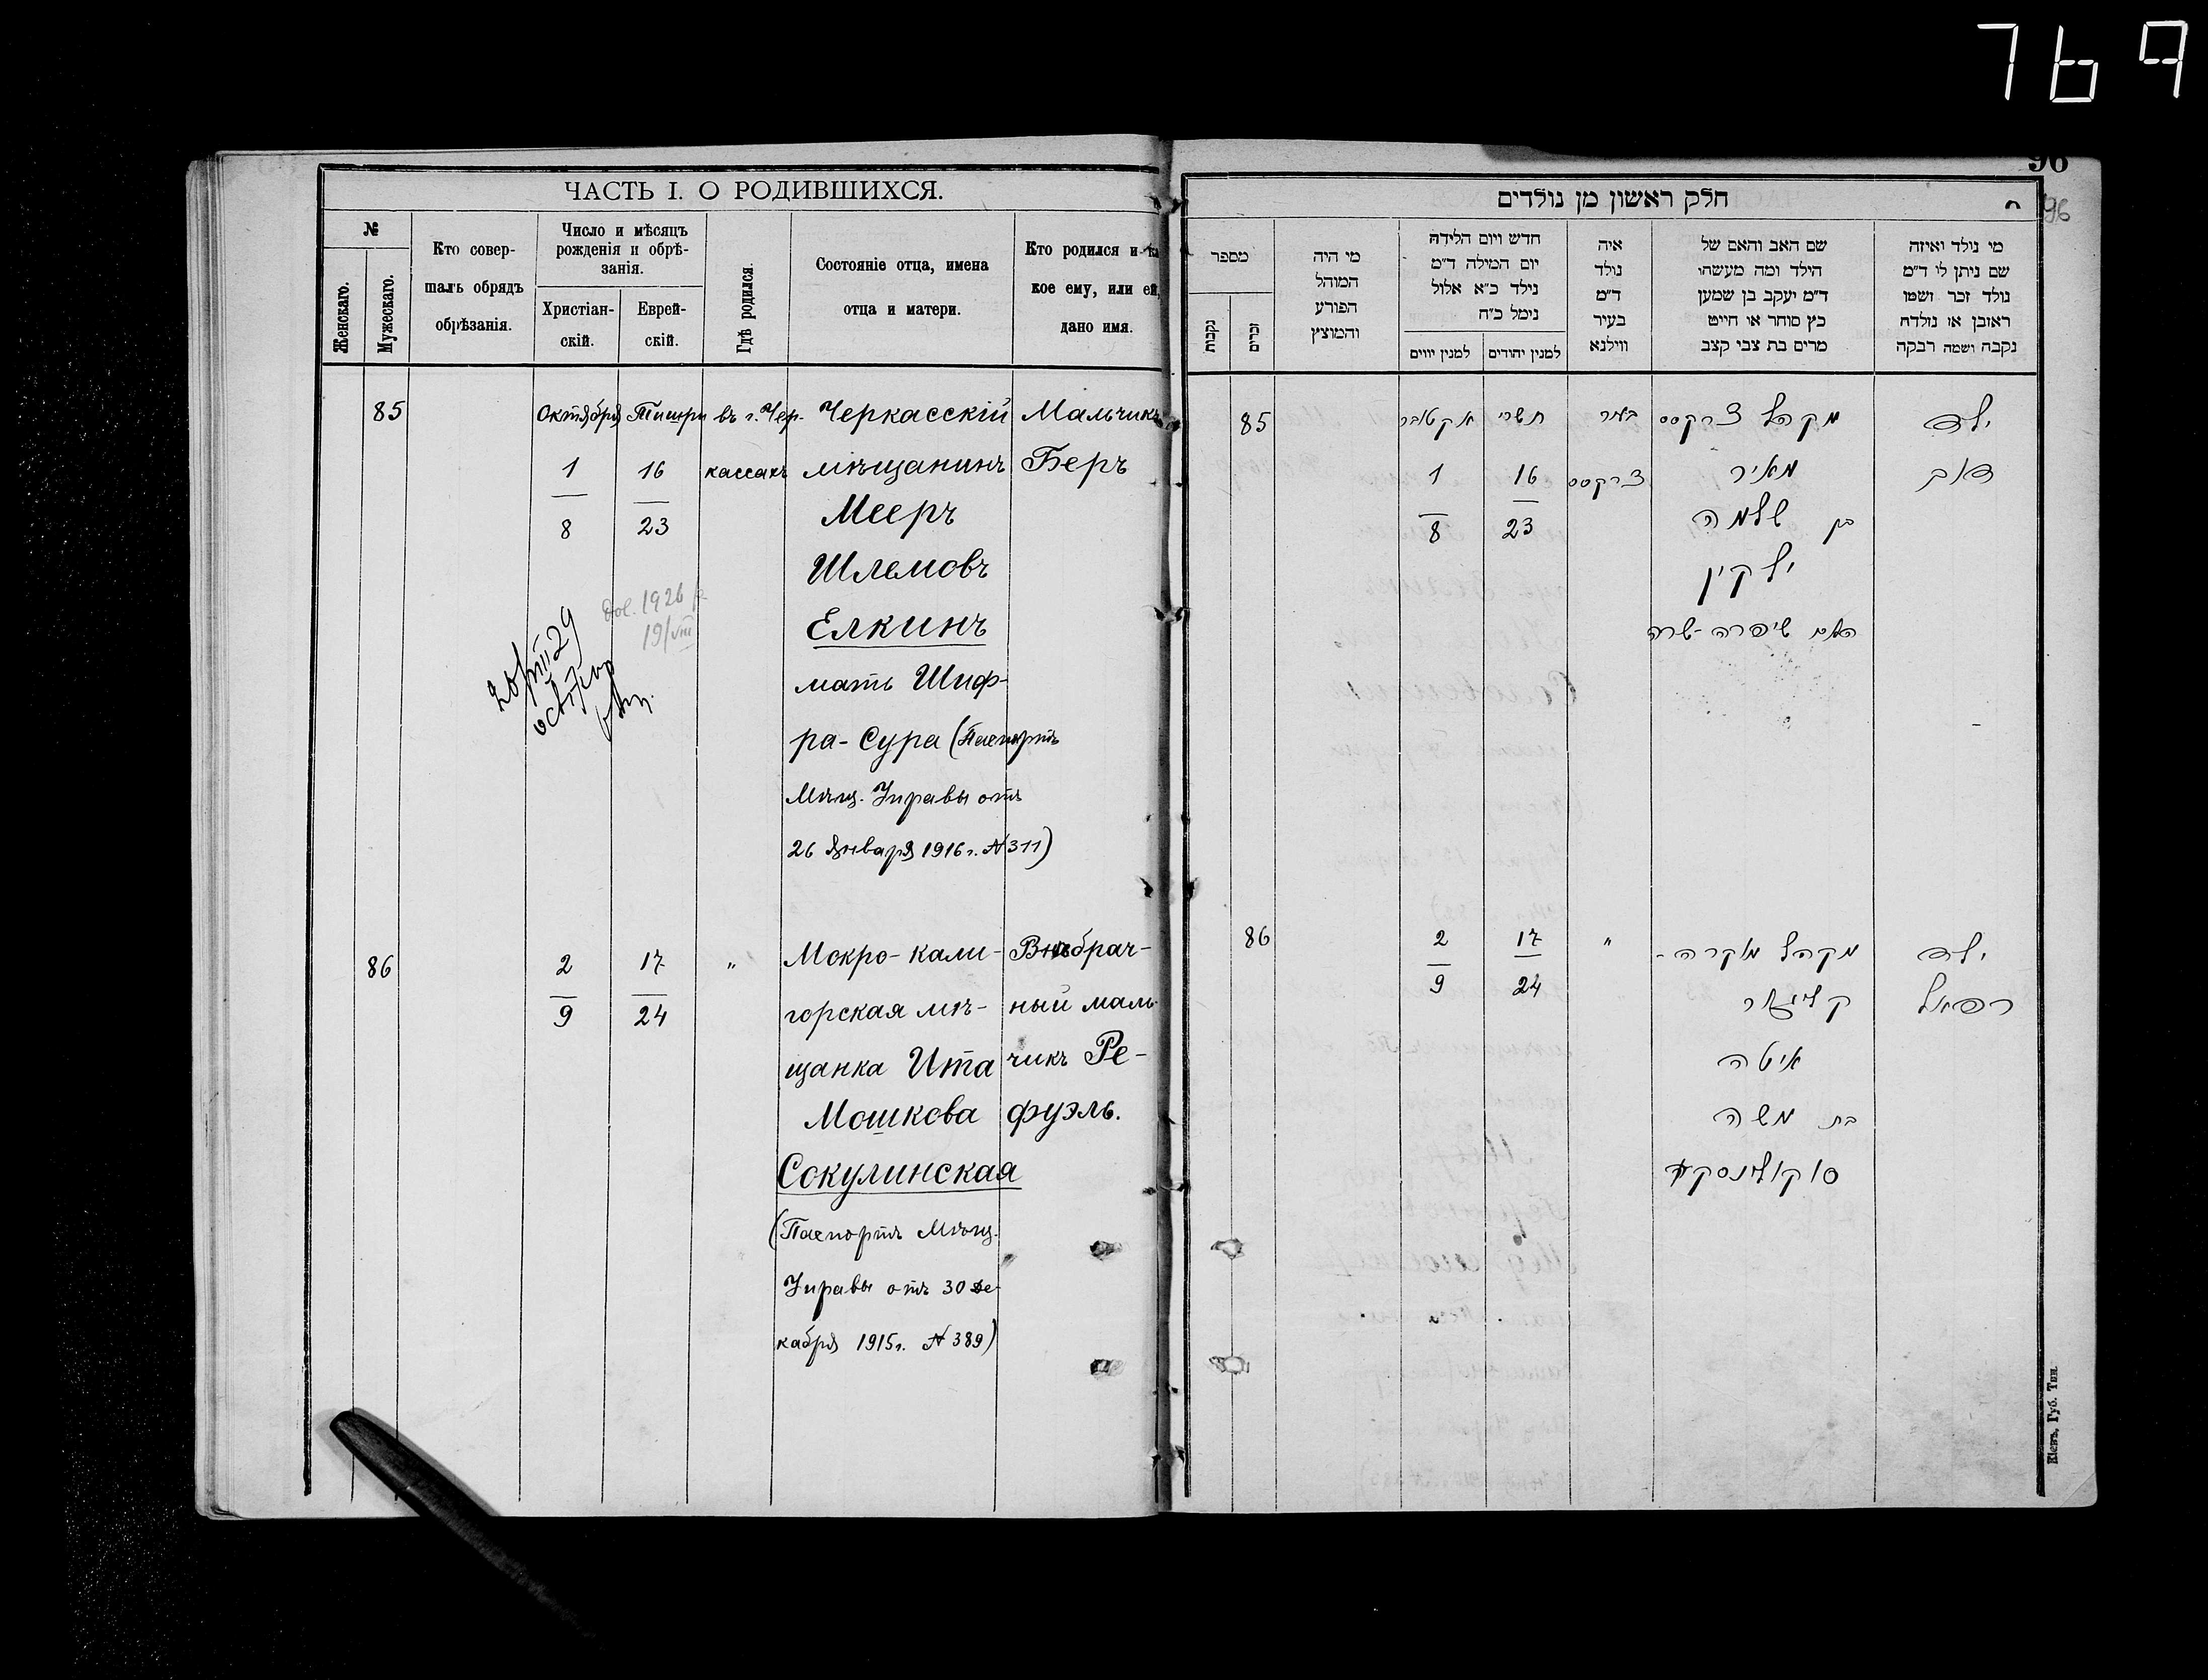 769
96
96
ЧАСТЬ I. О РОДИВШИХСЯ.
№
Женскаго.
Мужескаго.
Кто совер-
шалъ обрядъ
обрѣзанія.
Число и мѣсяцъ
рожденія и обрѣ-
занія.
Христіан-
скій.
Еврей-
скій.
Гдѣ родился.
Состояніе отца, имена
отца и матери.
Кто родился и ка
кое ему, или ей,
дано имя.
85 Октября Тишри въ г. Чер- Черкасскій Мальчикъ
1 16 кассахъ мѣщанинъ Беръ
8 23 Мееръ
Шлемовъ
Елкинъ
мать Шиф-
ра-Сура (Паспортъ
Мѣщ. Управы отъ
26 Января 1916 г. № 311)
1926 р.
19/VIII
86 2 17 " Мокро-кали- Внѣбрач-
9 24 горская мѣ- ный маль-
щанка Ита чикъ Ре-
Мошкова фуэль.
Сокулинская
(Паспортъ Мѣщ.
Управы отъ 30 Де-
кабря 1915 г. № 389)
חלק ראשון מן נולדים
מספר
נקבות
זכרים
מי היה
המוהל
הפורע
והמוצץ
חדש ויום הלידה
יום המילה ד״מ
נילד כ״א אלול
נימל כ״ח
למנין יווים
למנין יהודים
איה
נולד
ד״מ
בעיר
ווילנא
שם האב והאם של
הילד ומה מעשהו
ד״מ יעקב בן שמען
כץ סוחר או חייט
מרים בת צבי קצב
מי נולד ואיזה
שם ניתן לו ד״מ
נולד זכר ושמו
ראובן או נולדה
נקבה ושמה רבקה
85 אקטאבר תשרי בעיר מקהל צרקסס ילד
1 16 צרקסס מאיר דוב
8 23 בן שלמה
ילקין
האם שיפרה-שרה
86 2 17 " מקהל מוקרה- ילד
9 24 רפאל
איטה
בת משה
Кіевъ, Губ. Тип.